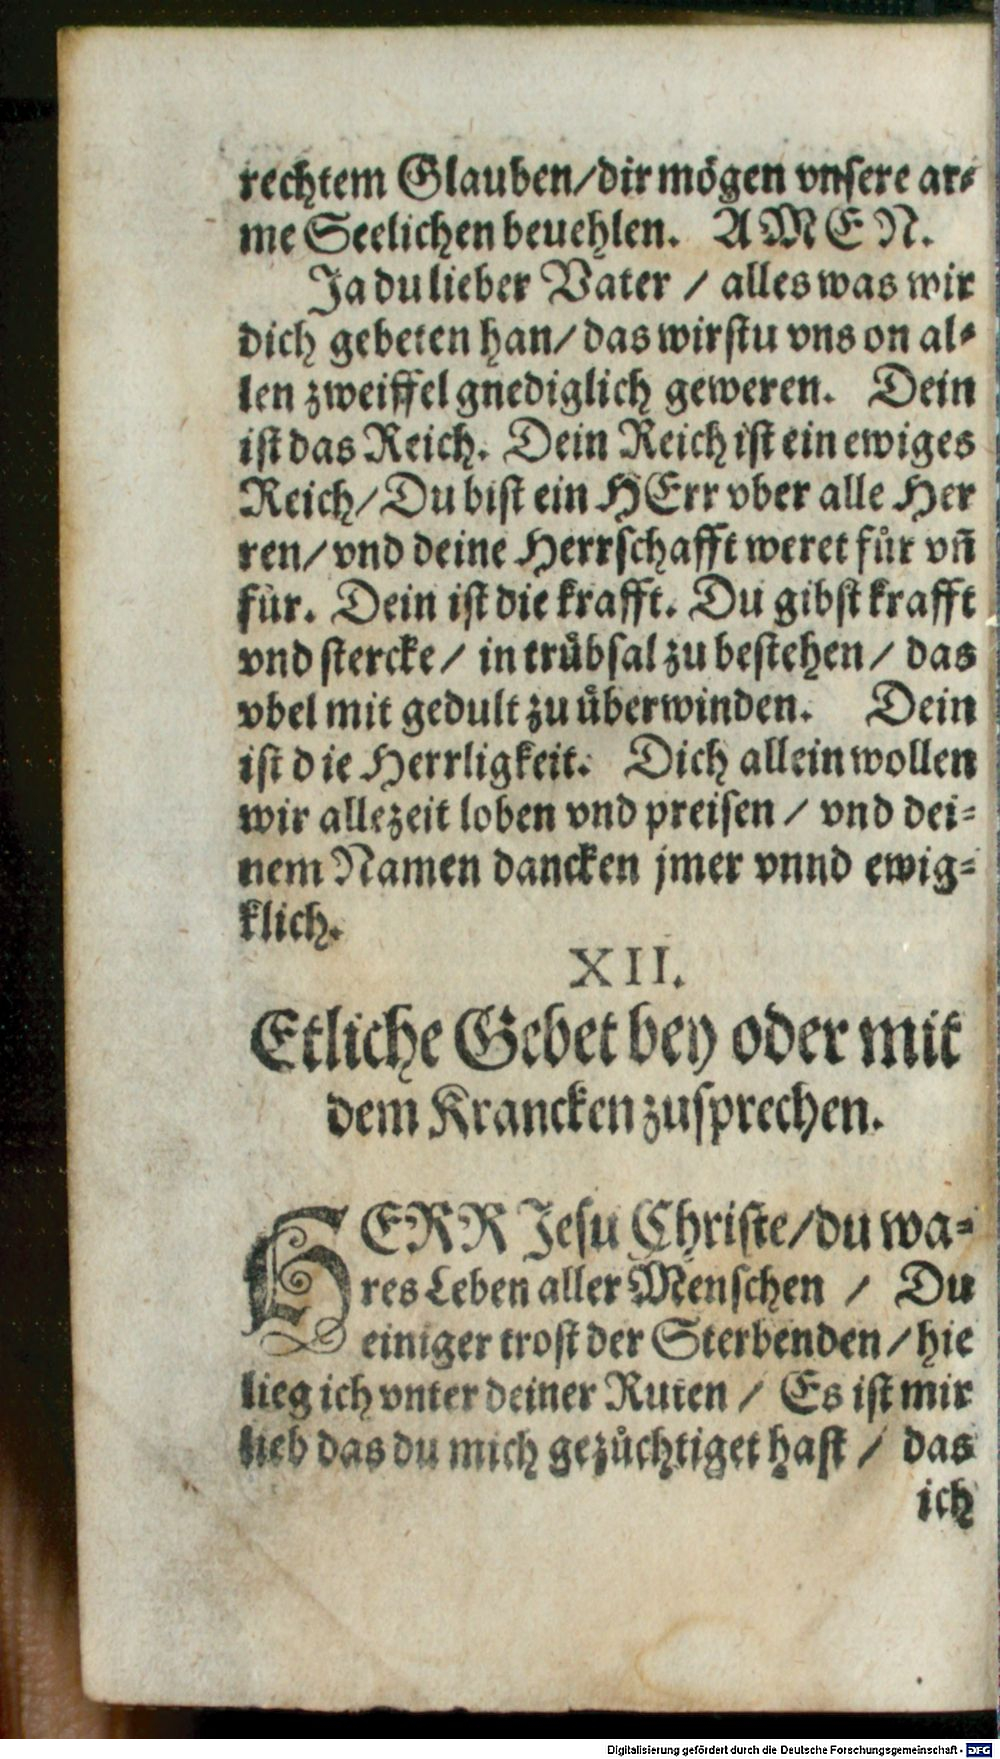 rechtem Glauben/dir mögen vnsere ar-
me Seelichen beuehlen. AMEN.
Ja du lieber Vater / alles was wir
dich gebeten han/ das wirstu vns on al-
len zweiffel gnediglich geweren. Dein
ist das Reich. Dein Reich ist ein ewiges
Reich/ Du bist ein HErr vber alle Her
ren/ vnd deine Herrschafft weret fuͤr vñ
fuͤr. Dein ist die krafft. Du gibst krafft
vnd stercke / in truͤbsal zu bestehen / das
vbel mit gedult zu uͤberwinden. Dein
ist die Herrligkeit. Dich allein wollen
wir allezeit loben vnd preisen / vnd dei-
nem Namen dancken jmer vnnd ewig-
klich.
XII.
Etliche Gebet bey oder mit
dem Krancken zusprechen.
HERR Jesu Christe/du wa-
res Leben aller Menschen / Du
einiger trost der Sterbenden / hie
lieg ich vnter deiner Ruten / Es ist mir
lieb das du mich gezuͤchtiget hast / das
ich
Digitalisierung gefördert durch die Deutsche Forschungsgemeinschaft - DFG